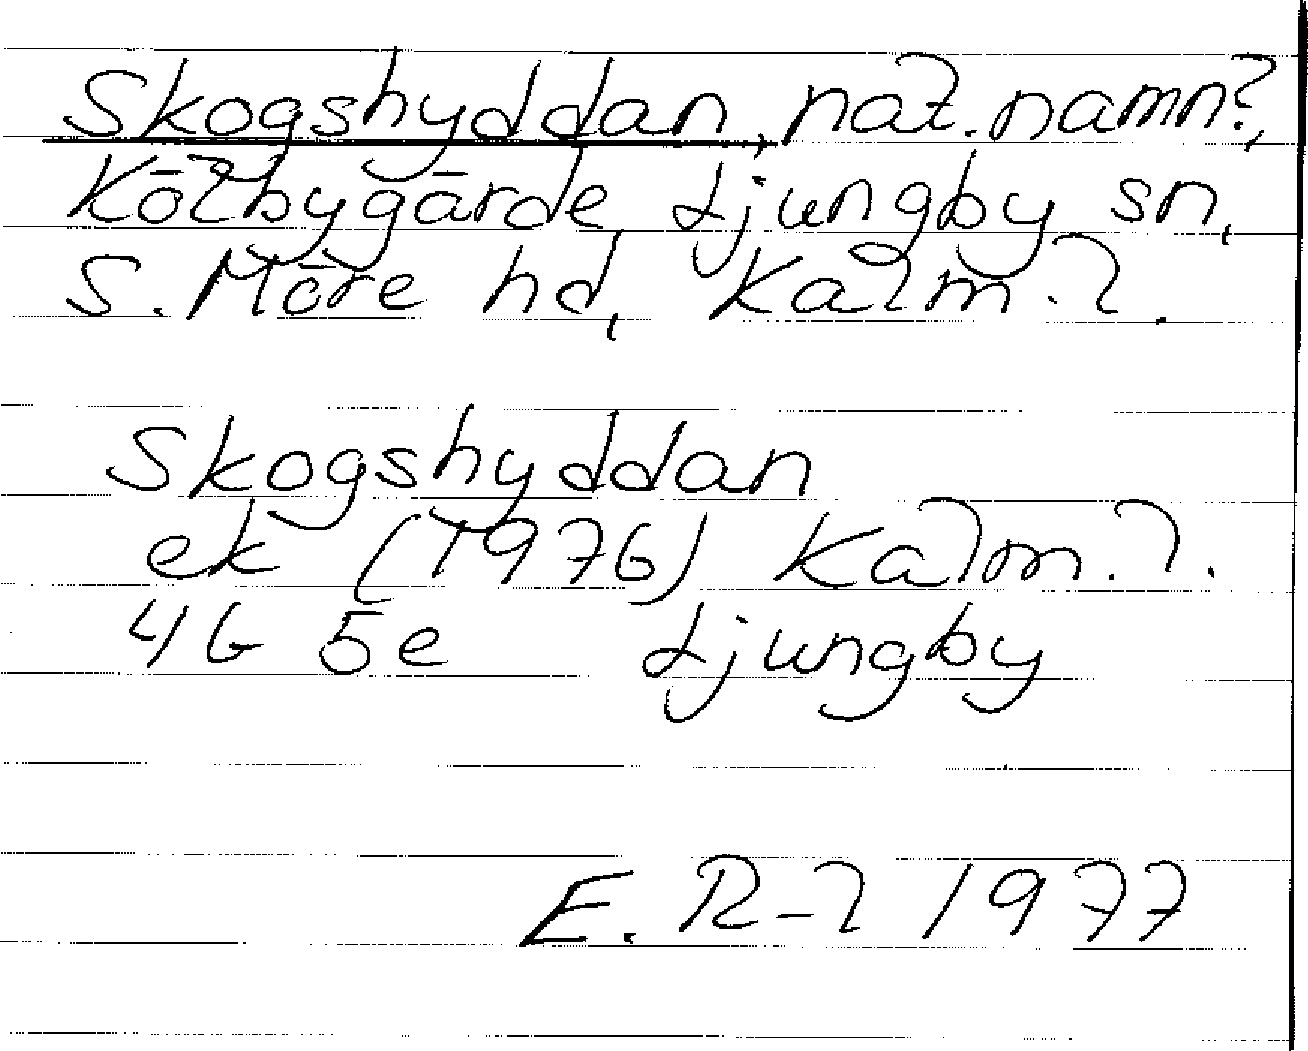 Skogshyddan, nat. namn?,
Kölbygärde, Ljungby sn,
S. Möre hd, Kalm. l.
Skogshyddan
ek (1976) Kalm. l.
4G 5e Ljungby
E. R-l 1977